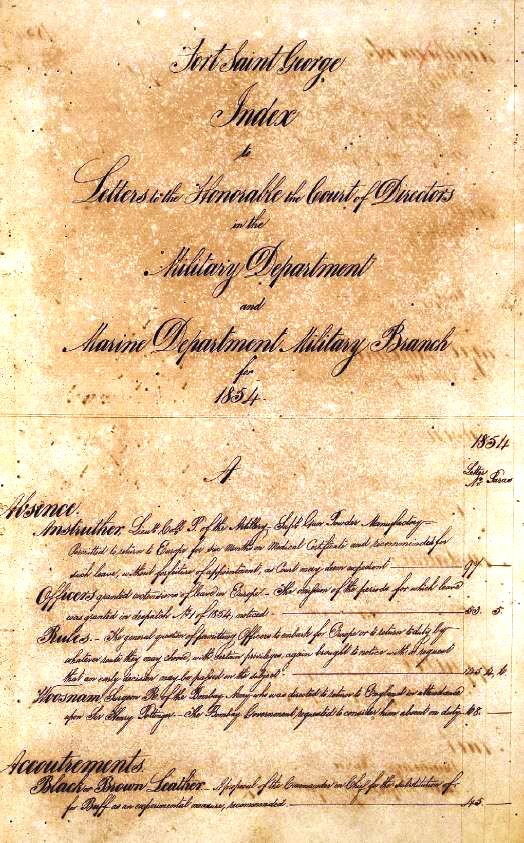 Fort Saint George
Index
to
Letters to the Honorable the Court of Directors
in the
Military Department
and
Marine Department Military Branch
for
1854.
1854
A
Letter No Paras
Absence.
Anstruther, Lieut Coll P. of the Artillery Supt Gun Powder Manufactory
Permitted to return to Europe for six Months on Medical Certificate and recommended for
such leave, without forfeiture of appointment, as Court may deem expedient 97
Officers granted extensions of leave in Europe The of the periods for which leave
was granted in despatch No 1 of 1854, noticed 53. 5
Rules. The general question of permitting Officers to embark for Europe or to return to duty by
whatever route they may choose, with certain privileges, again brought to notice with a request
that an early decision may be passed on the subject
Woosnam, Surgeon R. of the Bombay Army who was directed to return to England in attendance
upon Sir Henry Pottinger The Bombay Government requested to consider him absent on duty 68.
Accoutrements.
Black or Brown Leather A proposal of the Commander in Chief for the substitution of
for Buff as an experimental measure, recommended 45